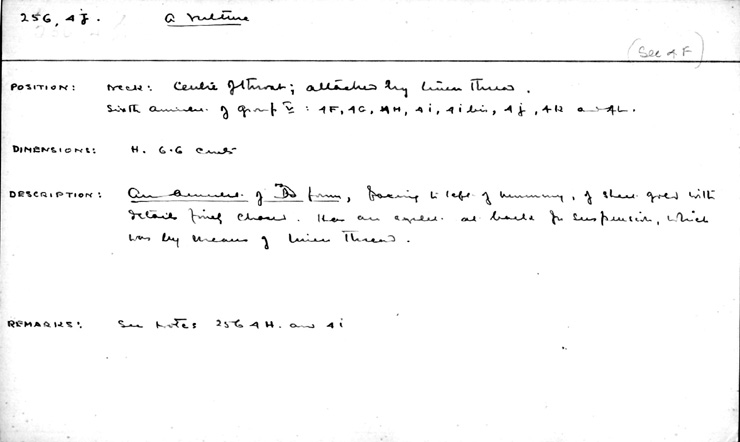 256, 4j. A vulture
(See 4F)
POSITION: Neck: centre of throat; attached by linen thread.
Sixth amulet of group V: 4F, 4G, 4H, 4i, 4i bis, 4j, 4K and 4L.
DIMENSIONS: H. 6.6 cmts
DESCRIPTION: An amulet of form, facing to left of mummy, of sheet gold with
details finely chased. Has an eyelet at back for suspension, which
was by means of linen thread.
REMARKS: See notes 256 4H. and 4i